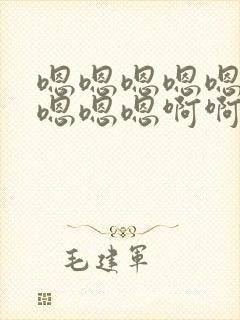 嗯嗯嗯嗯嗯
嗯嗯嗯啊啊
毛建军